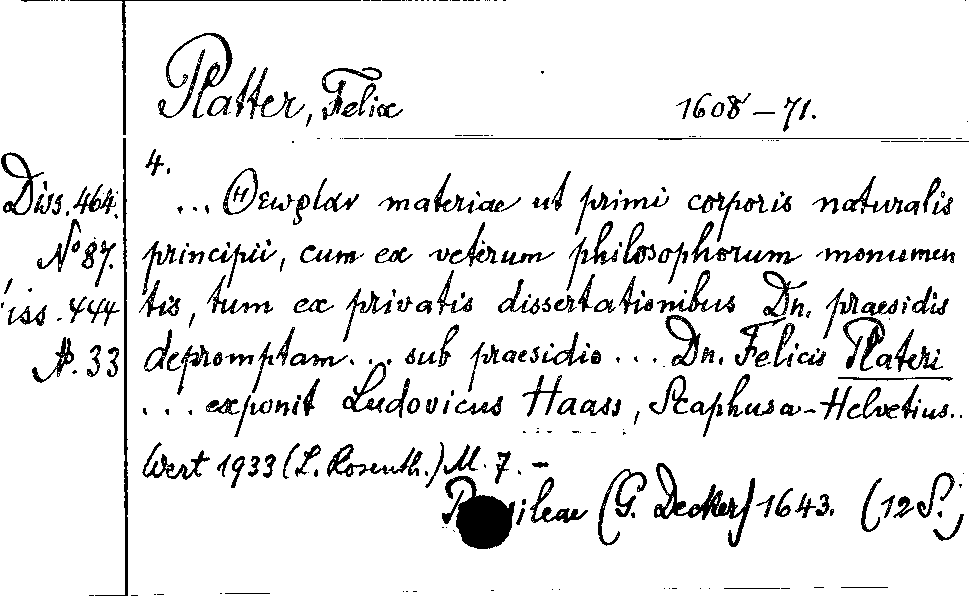 Platter, Felix 1608-71.
4.
Diss. 464. ... Θεωρίαν materiae ut primi corporis naturalis
No 87. principii, cum ex veterum philosophorum monumen
iss. 444 tis, tum ex privatis dissertationibus Dn. praesidis
N. 33 depromptam... sub praesidio ... Dn. Felicis Plateri
... exponit Ludovicus Haass, Scaphusa-Helvetius..
Wert 1933 (L. Rosenth.) M. 7. -
(G. Decker) 1643. (12 S.)